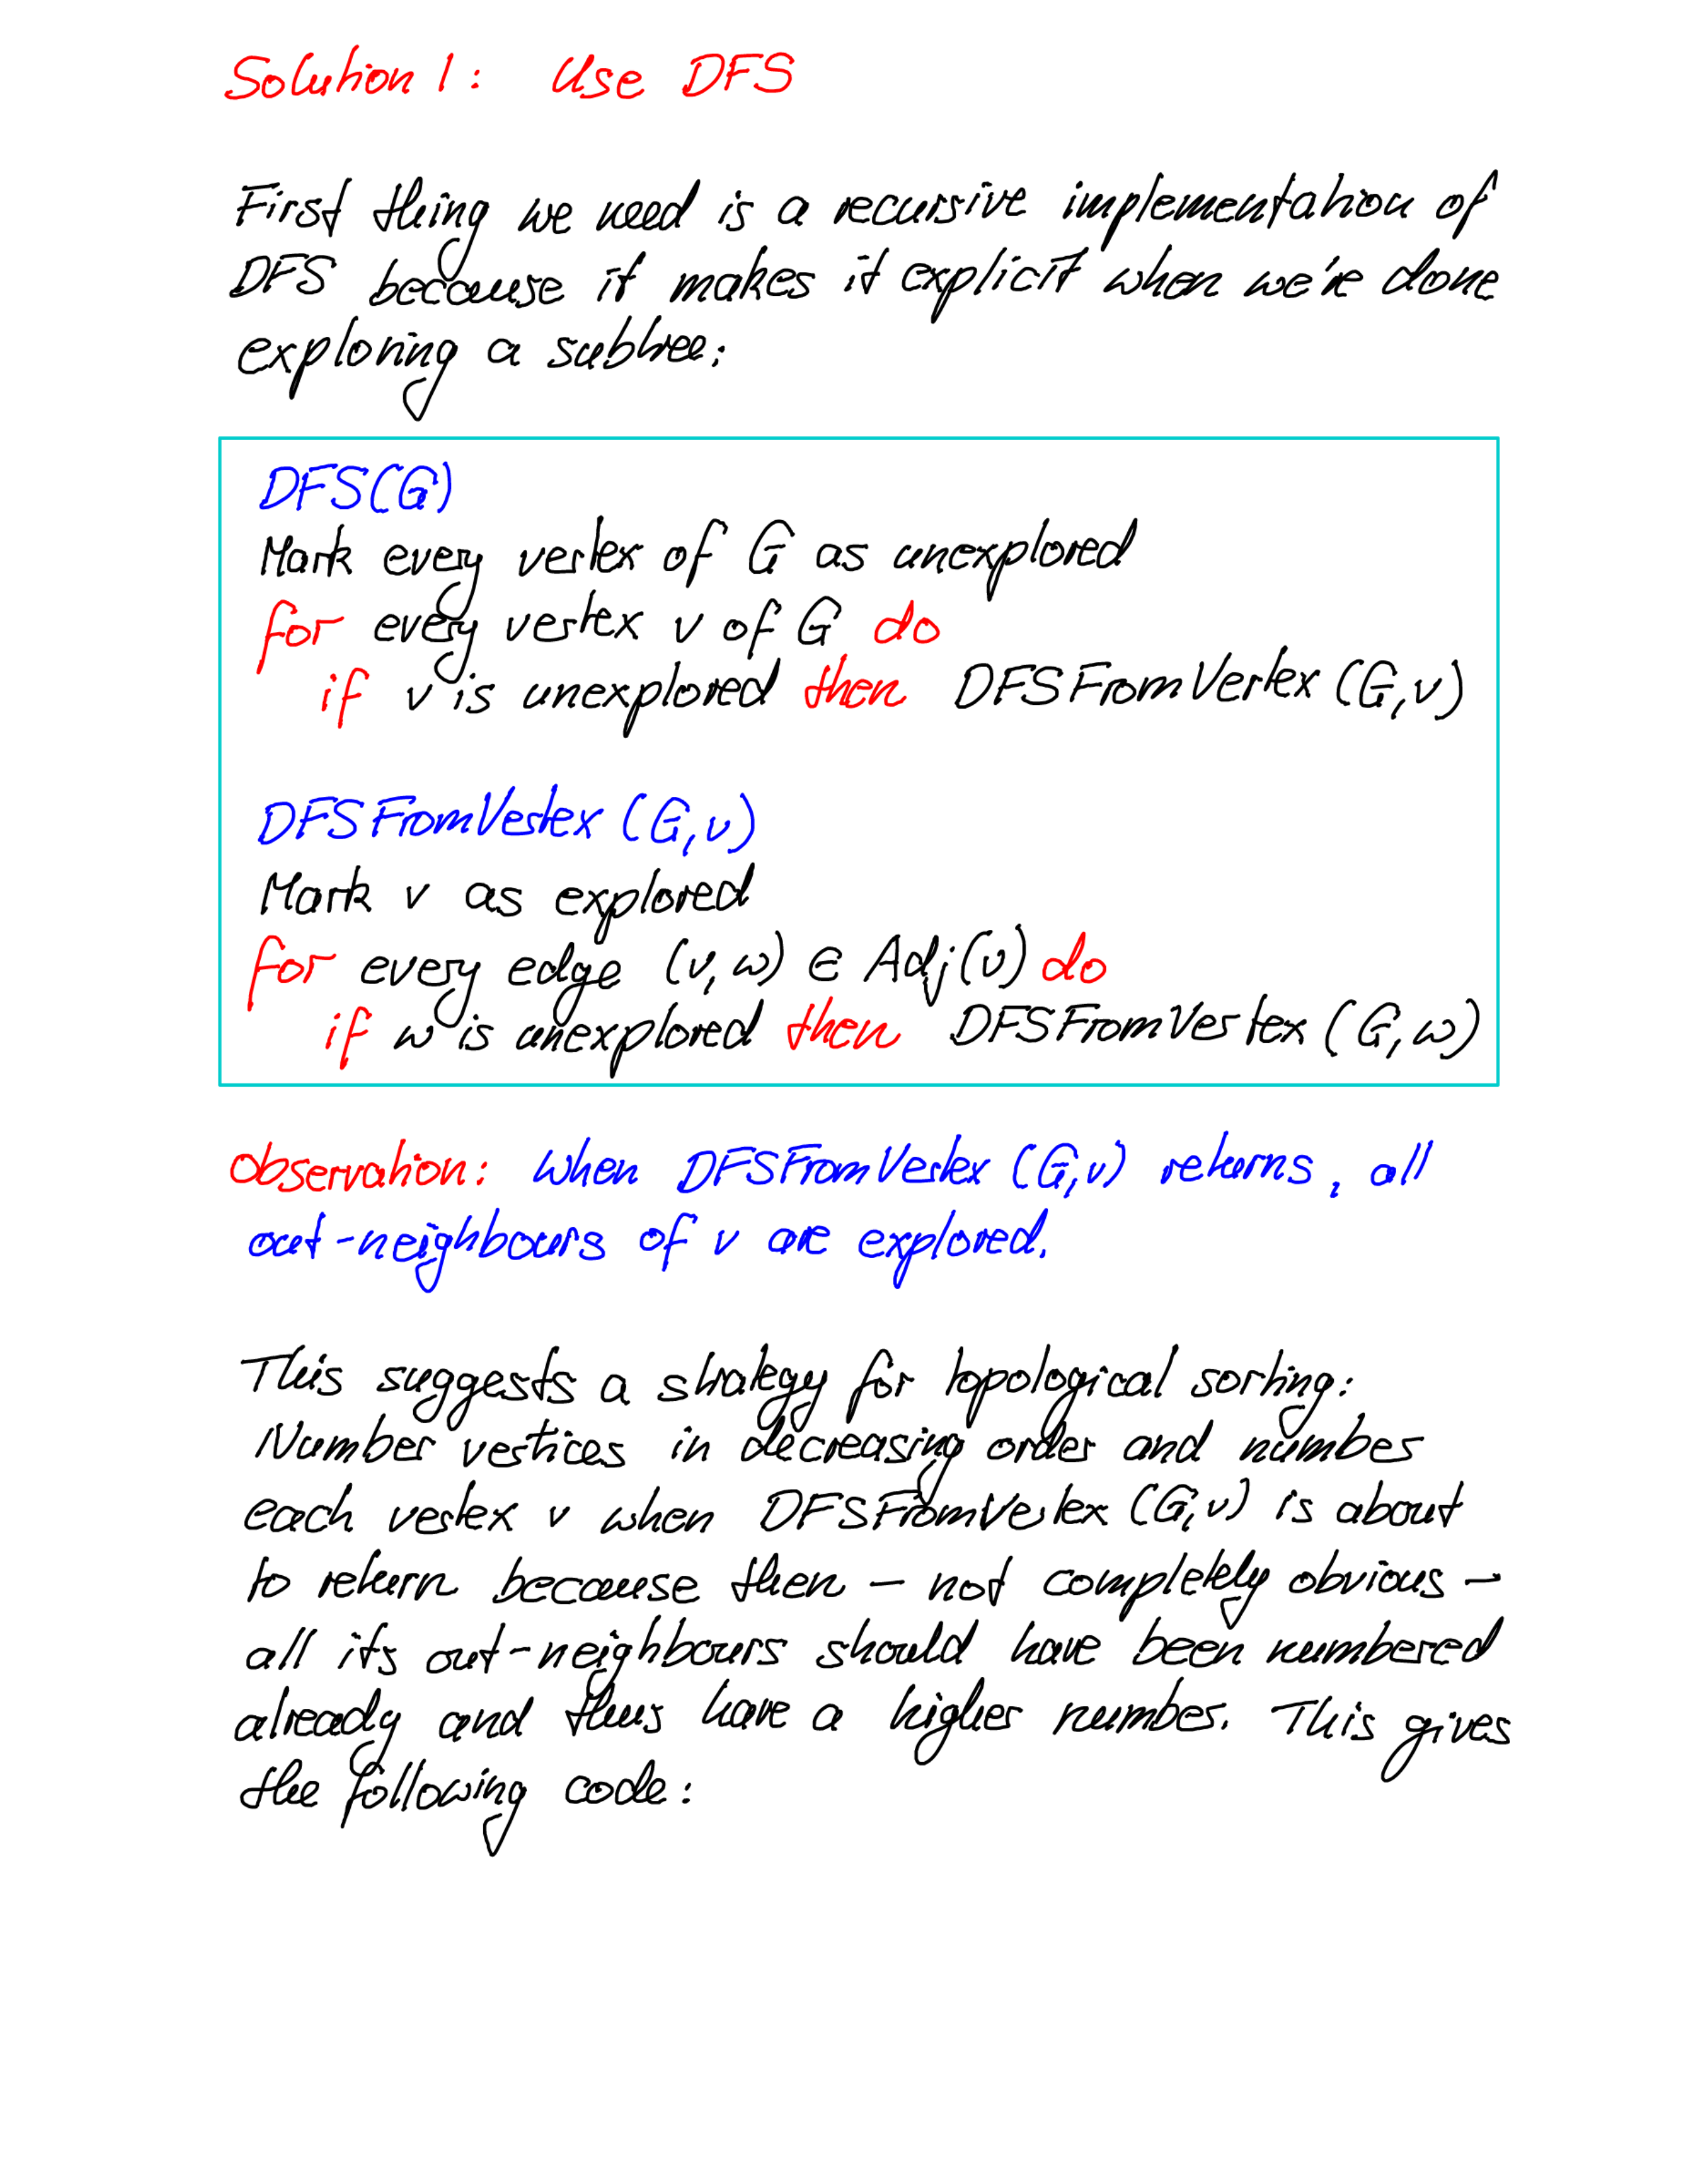 Solution 1: Use DFS
First thing we need is a recursive implementation of
DFS because it makes it explicit when we're done
exploring a subtree:
DFS(G)
Mark every vertex of G as unexplored
for every vertex v of G do
if v is unexplored then DFSFromVertex (G,v)
DFSFromVertex (G,v)
Mark v as explored
for every edge (v,w) ∈ Adj(v) do
if w is unexplored then DFSFromVertex (G,w)
Observation: When DFSFromVertex (G,v) returns, all
out-neighbours of v are explored.
This suggests a strategy for topological sorting:
Number vertices in decreasing order and number
each vertex v when DFSFromVertex (G,v) is about
to return because then – not completely obvious –
all its out-neighbours should have been numbered
already and thus have a higher number. This gives
the following code: